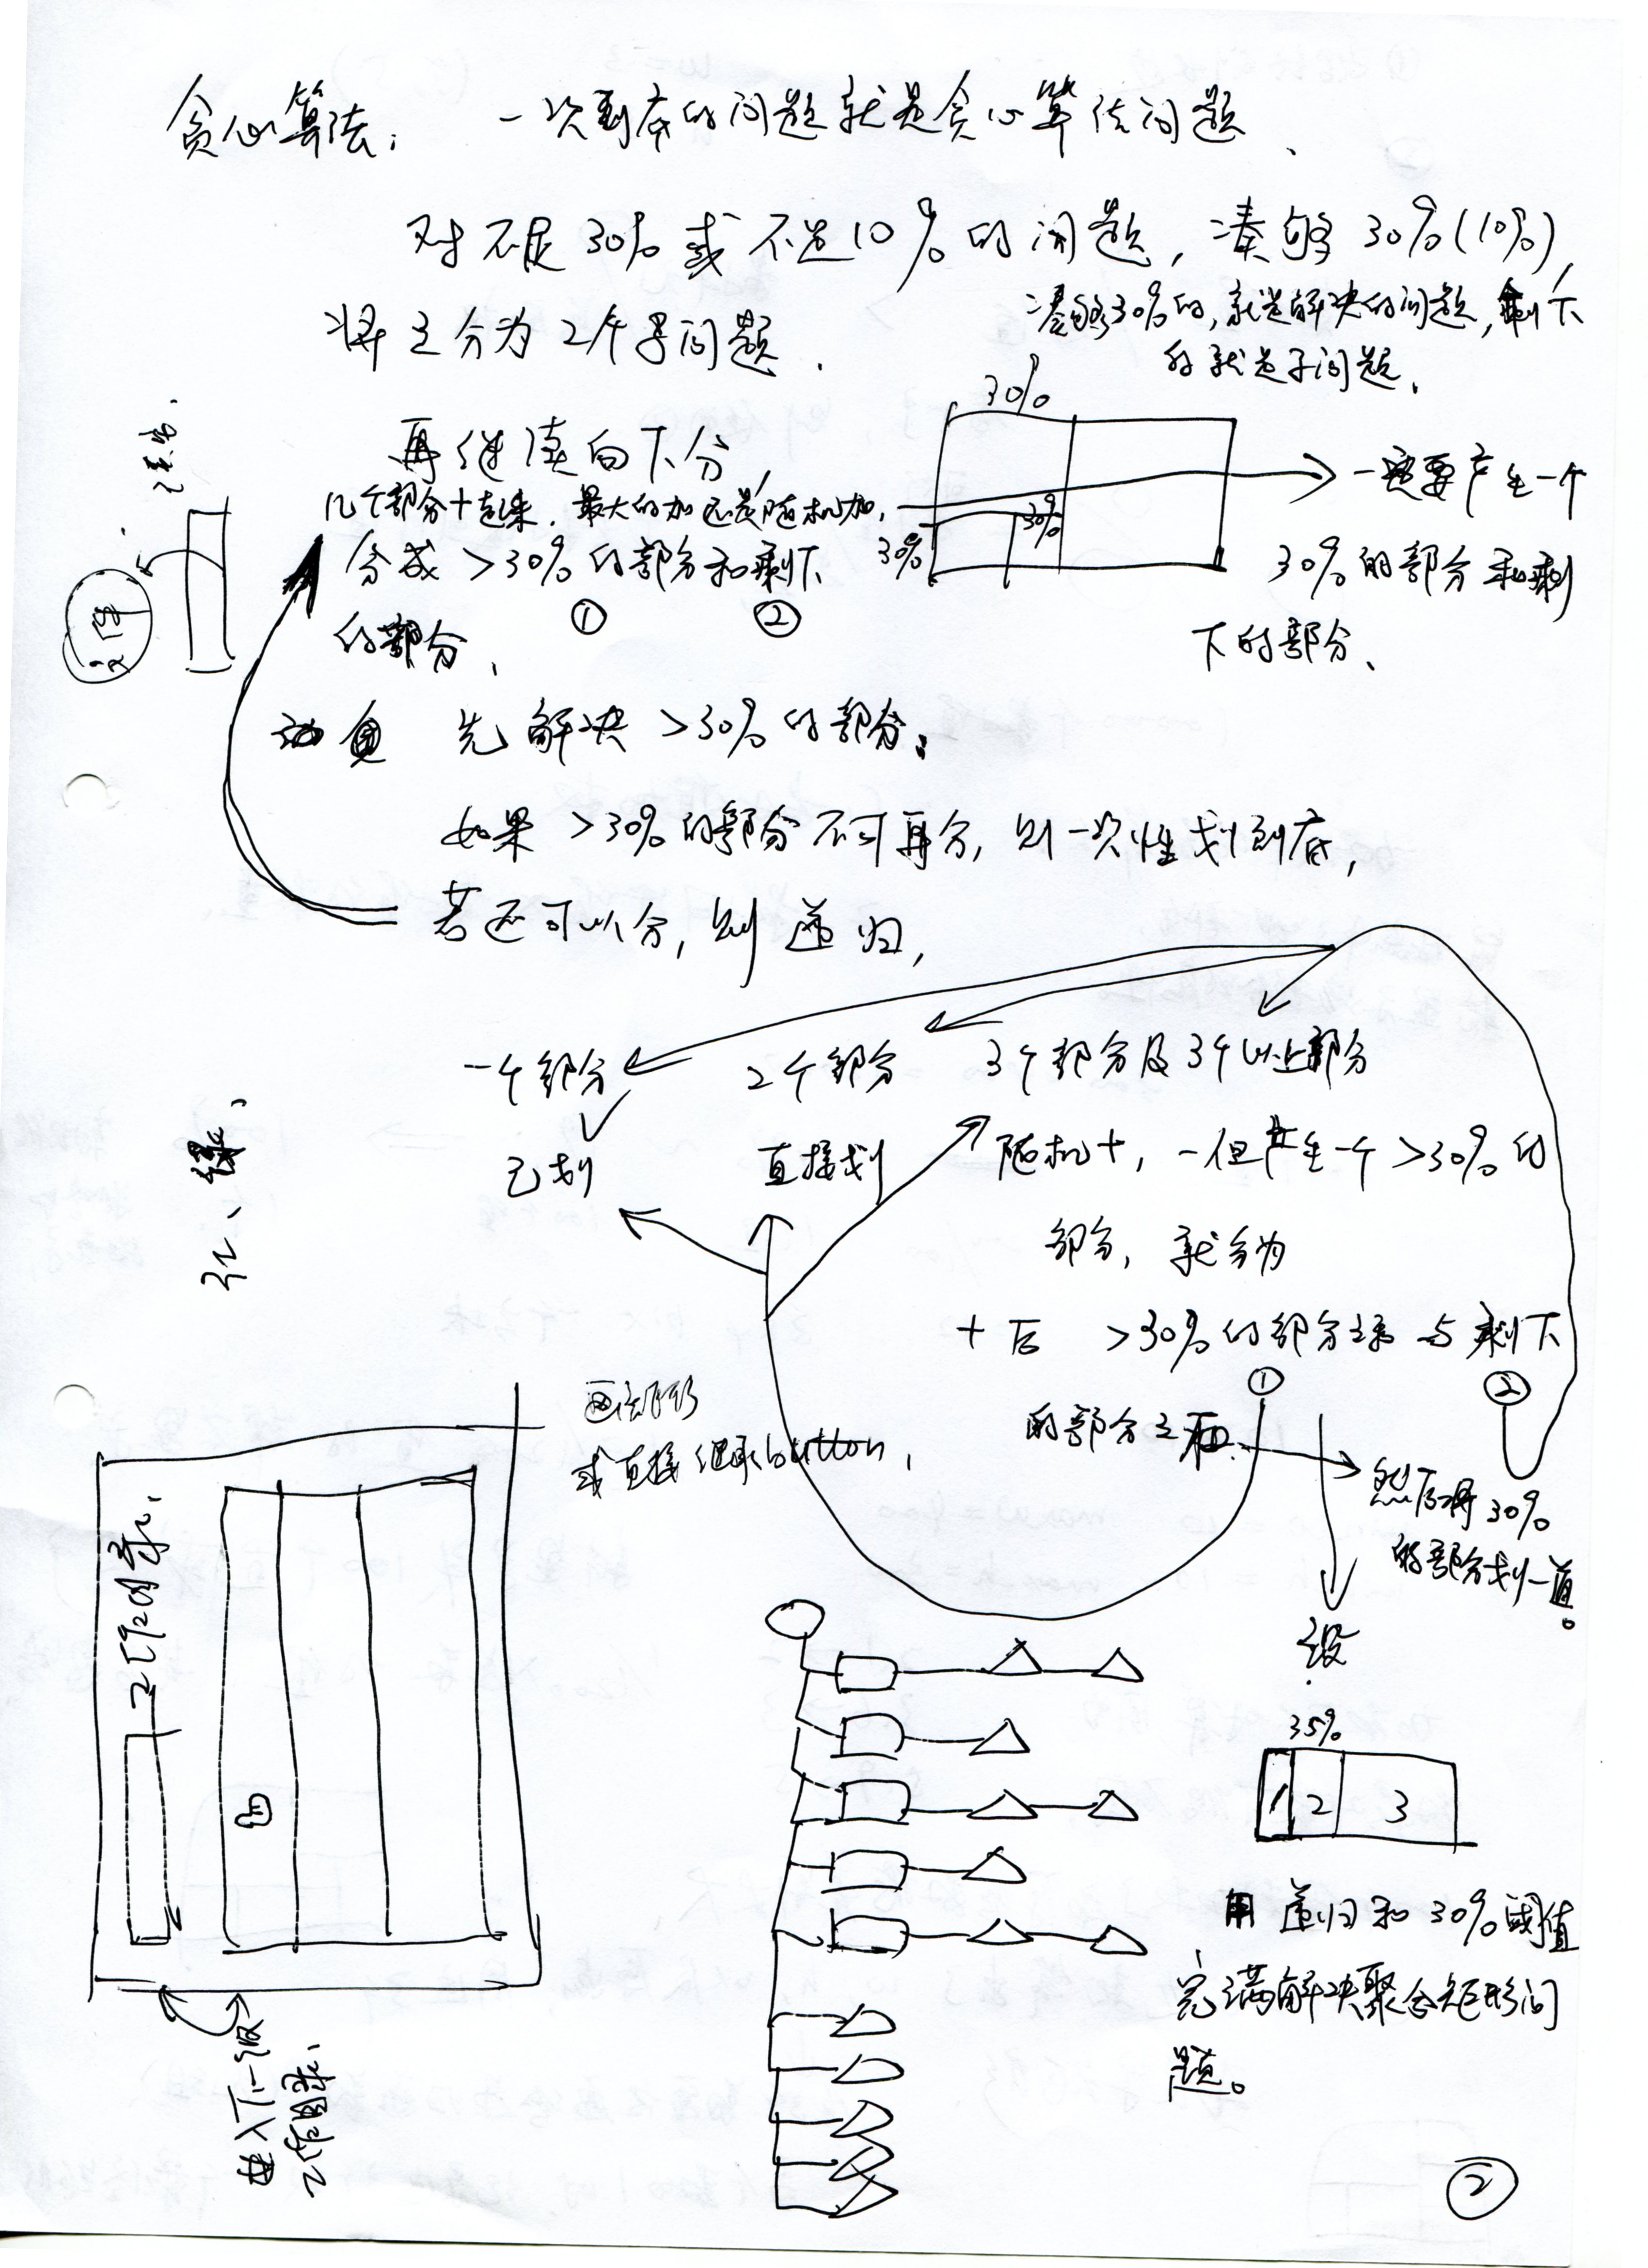 贪心算法: 一次到底的问题就是贪心算法问题、
对不足30%或不足10%的问题,凑够30%(10%),
将之分为2个子问题.
凑够30%的,就是解决的问题,剩下
的就是子问题.
再继续向下分,
几个部分+起来.最大的加还是随机加.
分成>30%的部分和剩下
① ②
的部分、
30%
30%
30%
一定要产生一个
30%的部分和剩
下的部分、
先解决>30%的部分;
如果>30%的部分不可再分,则一次性划到底,
若还可以分,则递归,
一个部分 2个部分 3个部分及3个以上部分
已划 直接划 随机+,一但产生一个>30%的
部分,就分为
+后 >30%的部分 与剩下
① ②
的部分之和.
然后将30%
的部分划一道。
画矩形
或直接继承button,
工作目录、
进入下一级
工作目录、
设
35%
1 2 3
用递归和30%阈值
完满解决聚合矩形问
题。
②